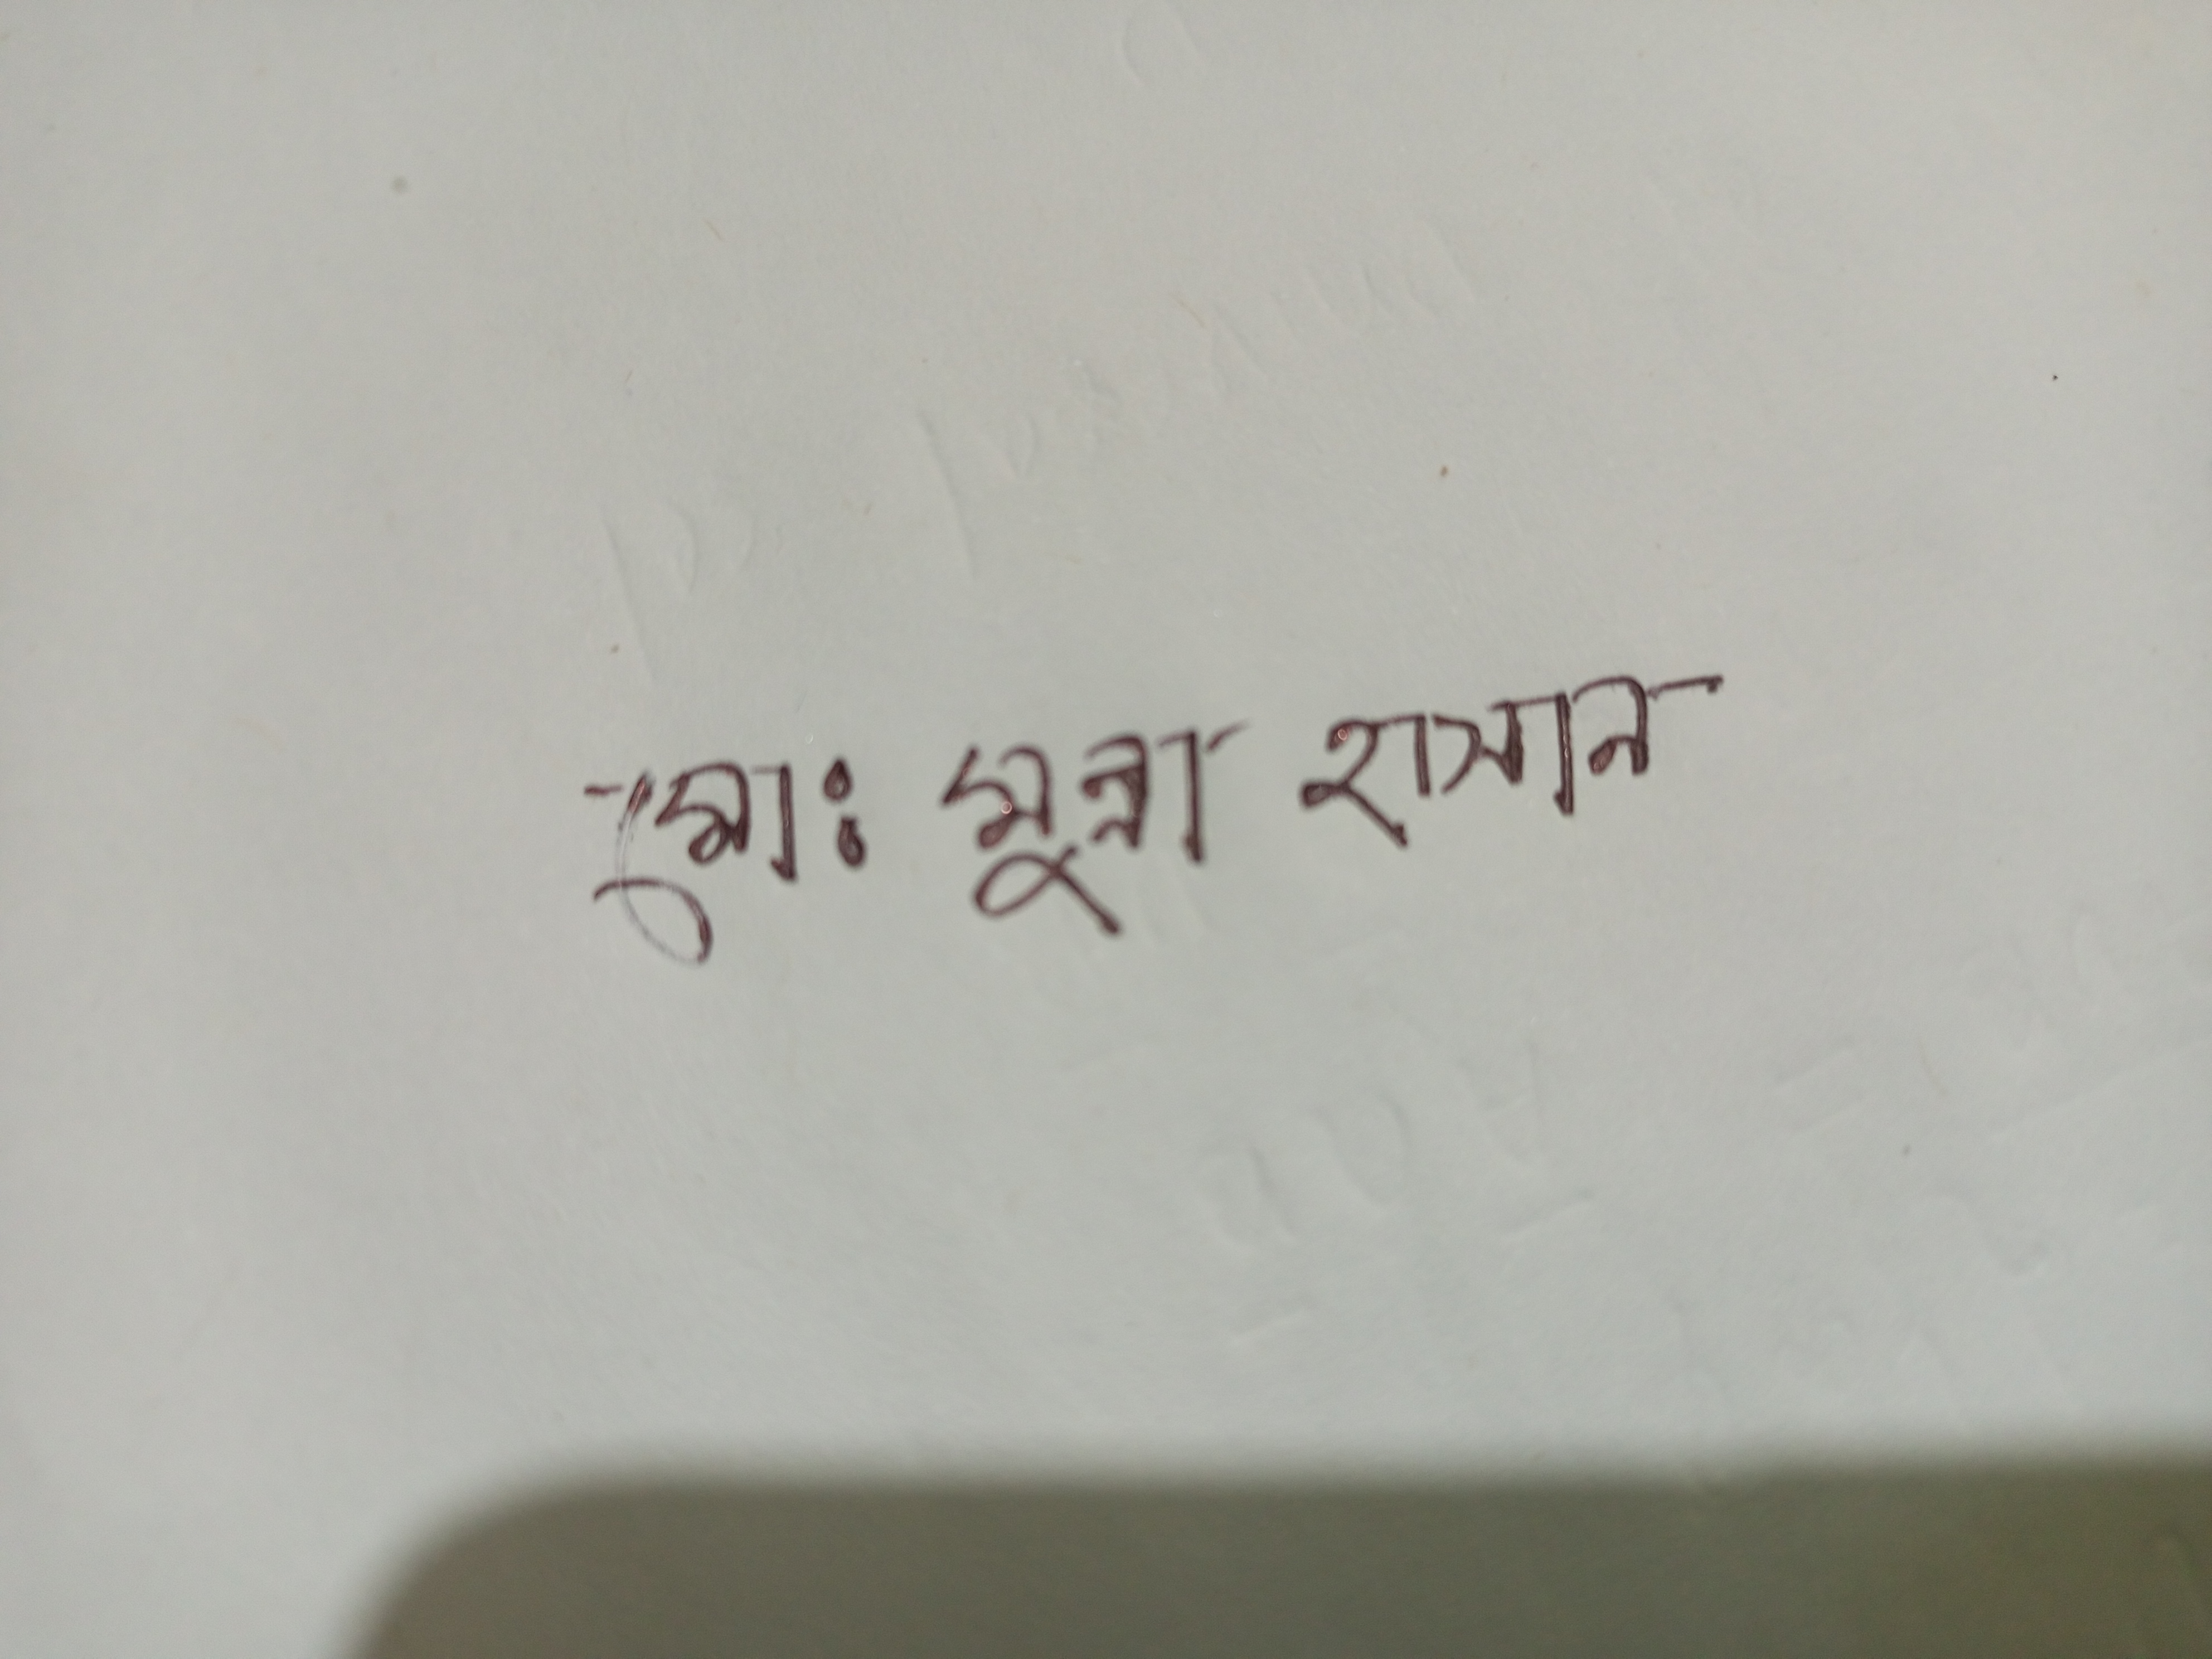 মোঃ মুন্না হাসান